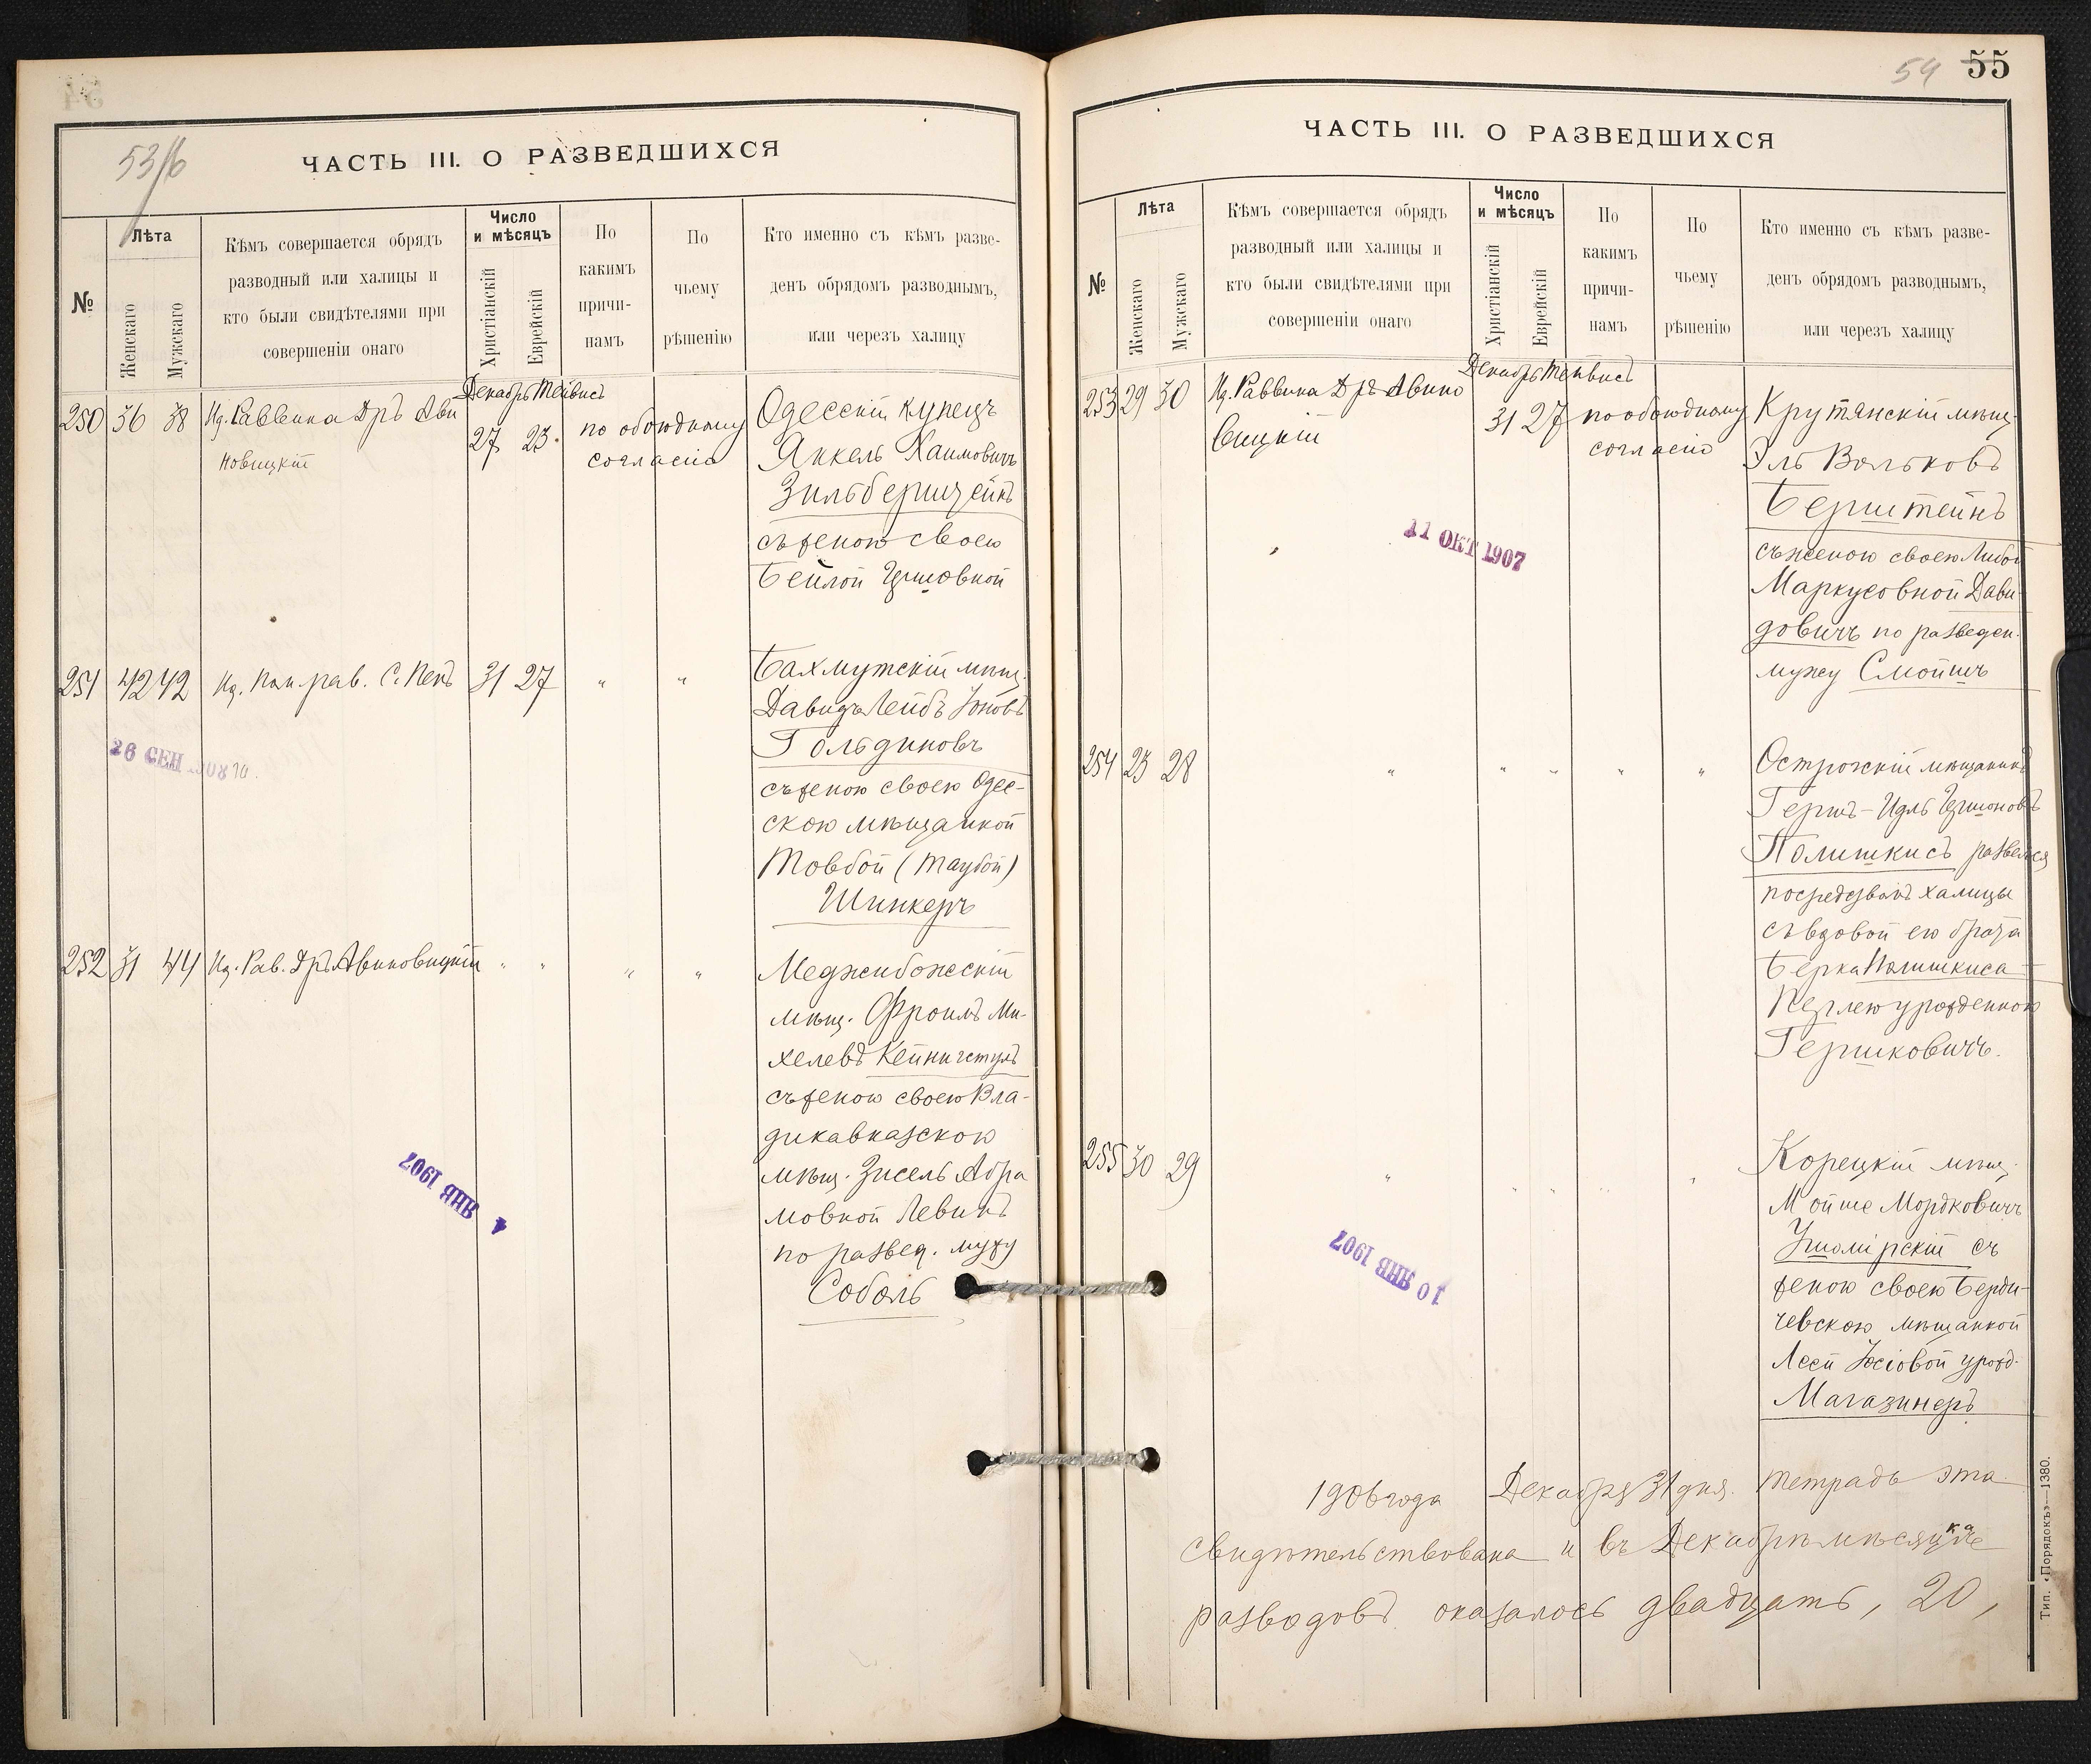 53/6
ЧАСТЬ III. О РАЗВЕДШИХСЯ
№
Лѣта
Женскаго
Мужскаго
Кѣмъ совершается обрядъ
разводный или халицы и
кто были свидѣтелями при
совершеніи онаго
Число
и мѣсяцъ
Христіанскій
Еврейскій
По
какимъ
причи-
намъ
По
чьему
рѣшенію
Кто именно съ кѣмъ разве-
денъ обрядомъ разводнымъ,
или черезъ халицу
Декабрь Тейвисъ
250 36 38
Ид. Раввина Дръ Ави
новицкій
27 23.
по обоюдному
согласію
Одесскій купецъ
Янкель Хаимовичъ
Зильберштейнъ
съ женою своею
Бейлой Гершовной
251 42 42
Ид. пом. рав. С. Пенъ
31 27
" "
Бахмутскій мѣщ.
Давидъ Лейбъ Іоновъ
Гольдиновъ
съ женою своею Одес-
скою мѣщанкой
Товбой (Таубой)
Шинкеръ
26 СЕН 1908
252 31 44
Ид. Рав. Дръ Авиновицкій
" " " "
Меджибожскій
мѣщ. Фроимъ Ми-
хелевъ Кейнигстулъ
съ женою своею Вла-
дикавказскою
мѣщ. Зисель Абра
мовной Левинъ
по развед. мужу
Соболь
4 ЯНВ 1907
54 55
ЧАСТЬ III. О РАЗВЕДШИХСЯ
№
Лѣта
Женскаго
Мужскаго
Кѣмъ совершается обрядъ
разводный или халицы и
кто были свидѣтелями при
совершеніи онаго
Число
и мѣсяцъ
Христіанскій
Еврейскій
По
какимъ
причи-
намъ
По
чьему
рѣшенію
Кто именно съ кѣмъ разве-
денъ обрядомъ разводнымъ,
или черезъ халицу
Декабрь Тейвисъ
253 29 30
Ид. Раввина Дръ Авино
вицкій
31 27
по обоюдному
согласію
Крутянскій мѣщ.
Эль Вольковъ
Берштейнъ
съ женою своею Либой
Маркусовной Дави-
довичъ по разведен.
мужу Смотшъ
11 ОКТ 1907
254 23 28
" " " " "
Острожскій мѣщанинъ
Гершъ-Идль Гершоновъ
Полишкисъ развелся
посредствомъ халицы
съ вдовой его брата
Берка Полишкиса
Перлею урожденною
Гершковичъ.
255 30 29
" " " " "
Корецкій мѣщ.
Мойше Мордковичъ
Ушомірскій съ
женою своею Берди-
чевскою мѣщанкой
Леей Іосіовой урожд.
Магазинеръ
10 ЯНВ 1907
1906 года Декабря 31 дня. Тетрадь эта
свидѣтельствована и въ Декабрѣ мѣсяцѣ
разводовъ оказалось двадцать, 20,
Тип. «Порядокъ»—1380.